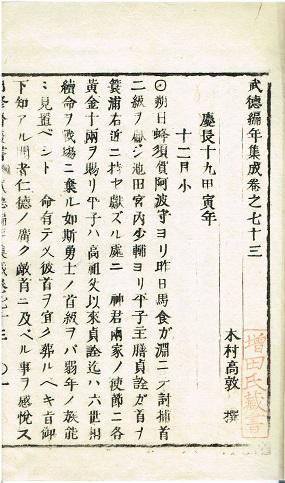 武德編年集成卷之七十三
木村高敦 撰
增田氏藏書
慶長十九甲寅年
十二月小
○朔日蜂須賀阿波守ヨリ昨日馬食ガ淵ニテ討捕首
二級ヲ獻ジ池田宮内少輔ヨリ平子主膳貞詮ガ首ヲ
箕浦右近ニ持セ獻ズル處ニ 神君兩家ノ使節ニ各
黃金十兩ヲ賜リ平子ハ高祖父以來貞詮迄ハ六世相
續命ヲ戰場ニ棄ル如斯勇士ノ首級ヲバ弱年ノ族能
ミ見置ベシト 命有テ又彼首ヲ宜ク葬ルベキ旨御
下知アル聞者仁德ノ廣ク敵首ニ及ベル事ヲ感悅ス